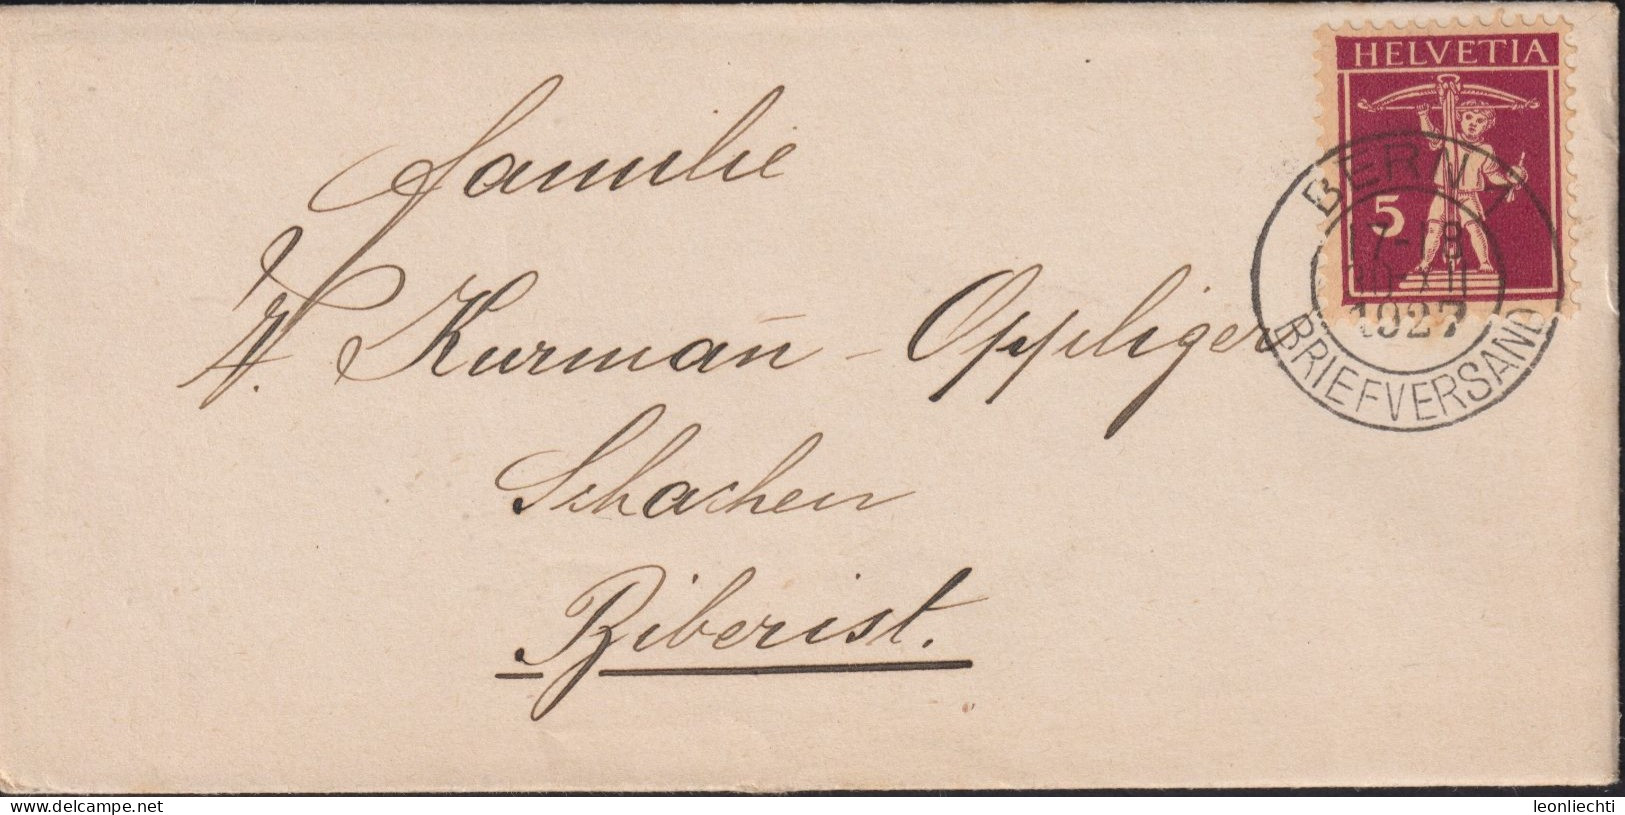 HELVETIA
5
BERN 1
17-18
10·XII
1927
BRIEFVERSAND
Familie
A. Kurmañ - Oppliger
Schachen
Biberist.
www.delcampe.net
leonliechti